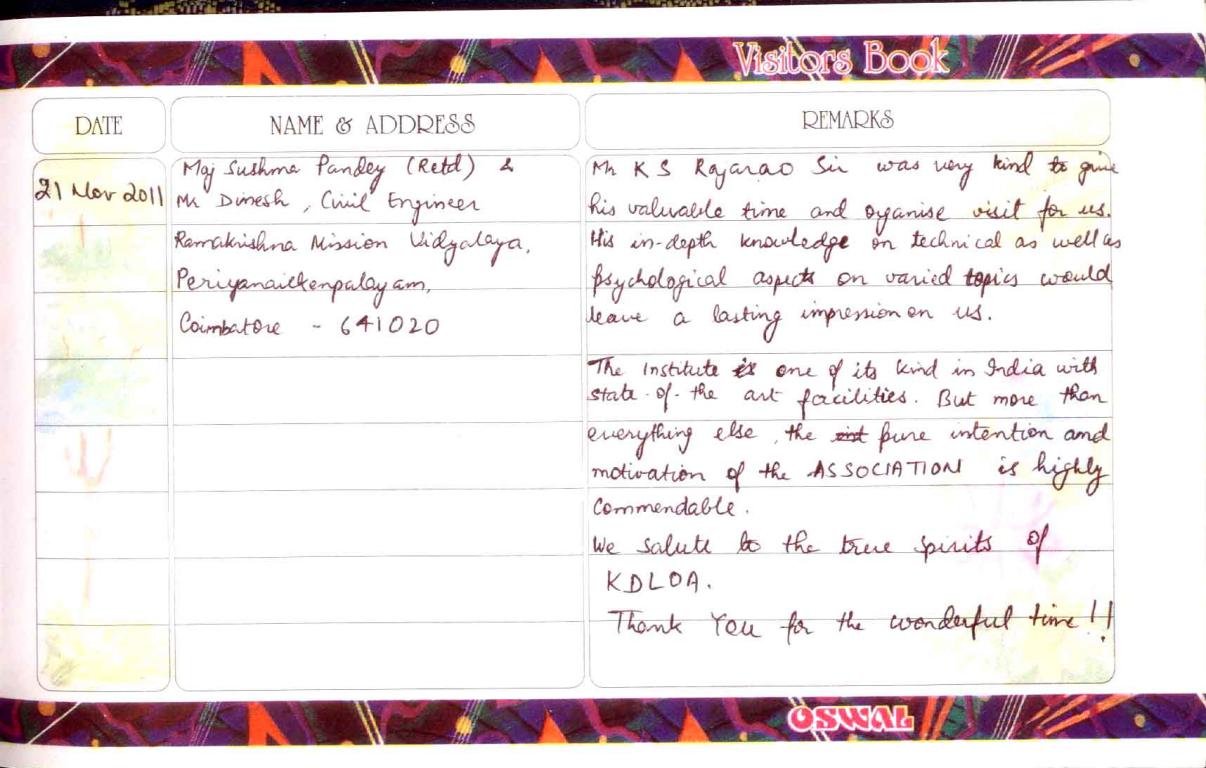 Visitors Book
DATE
NAME & ADDRESS
REMARKS
21 Nov 2011
Maj Sushma Pandey (Retd) &
Mr Dinesh, Civil Engineer
Ramakrishna Mission Vidyalaya,
Periyanaickenpalayam,
Coimbatore - 641020
Mr K S Rajarao Sir was very kind to give
his valuvable time and oganise visit for us.
His in-depth knowledge on technical as well as
psychological aspects on varied topics would
leave a lasting impression on us.
The Institute is one of its kind in India with
state-of-the art facilities. But more than
everything else, the pure intention and
motivation of the ASSOCIATION is highly
commendable.
We salute to the true spirits of
KDLOA.
Thank You for the wonderful time!!
OSWAL